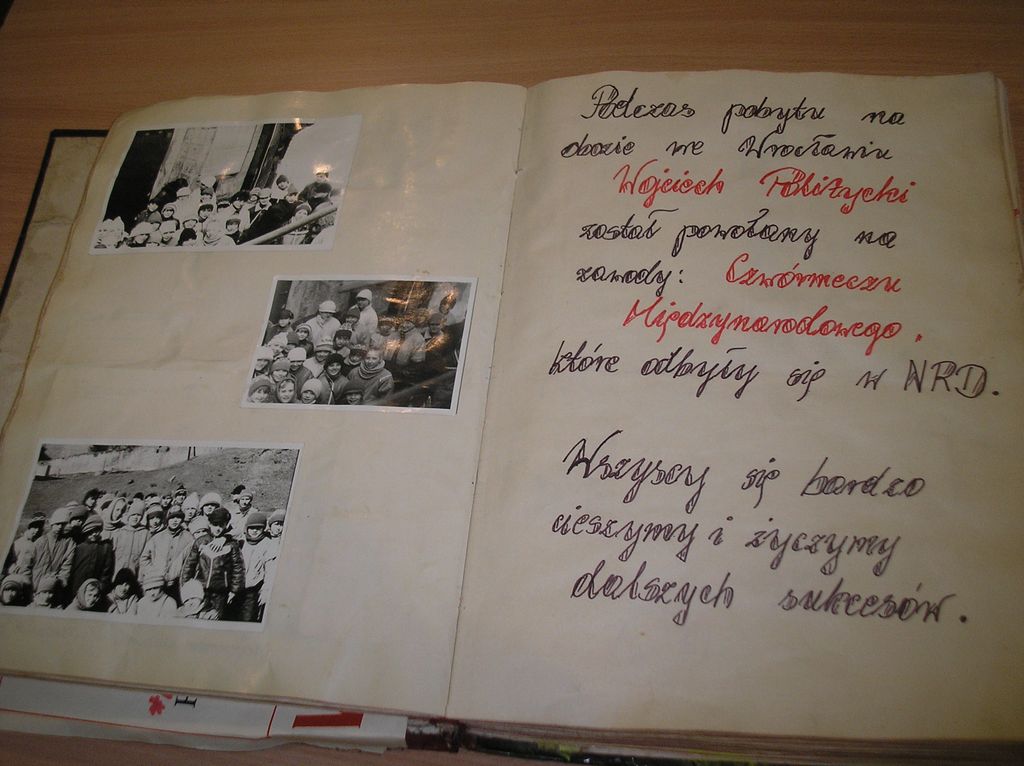 Podczas pobytu na
obozie we Wrocławiu
Wojciech
został powołany na
zawody: Czwórmeczu
Międzynarodowego,
które odbyły się w NRD.
Wszyscy się bardzo
cieszymy i życzymy
dalszych sukcesów.